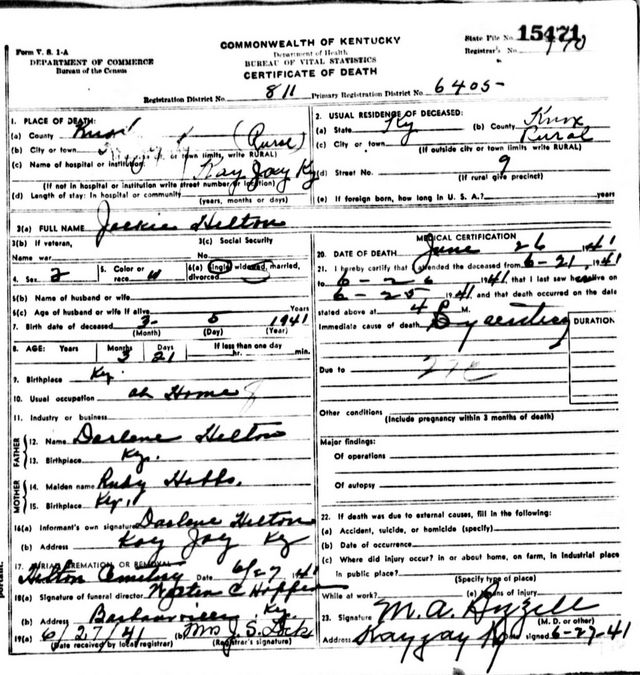 Form V. S. 1-A
DEPARTMENT OF COMMERCE
Bureau of the Census
COMMONWEALTH OF KENTUCKY
Department of Health
BUREAU OF VITAL STATISTICS
CERTIFICATE OF DEATH
State File No. 15471
Registrar's No.
Registration District No. 811 Primary Registration District No. 6405
1. PLACE OF DEATH:
(a) County Knox
(b) City or town (Rural)
(If outside city or town limits, write RURAL)
(c) Name of hospital or institution: Kay Jay Ky
(If not in hospital or institution write street number or location)
(d) Length of stay: In hospital or community
(years, months or days)
2. USUAL RESIDENCE OF DECEASED:
(a) State Ky (b) County Knox
(c) City or town Rural
(If outside city or town limits write RURAL)
(d) Street No. 9
(If rural give precinct)
(e) If foreign born, how long in U. S. A.? years
3(a) FULL NAME Jackie Helton
3(b) If veteran,
Name war
3(c) Social Security
No.
4. Sex 2
5. Color or race W
6(a) Single, widowed, married, divorced
5(b) Name of husband or wife
6(c) Age of husband or wife if alive Years
7. Birth date of deceased 3- 5 1941
(Month) (Day) (Year)
8. AGE: Years Months 3 Days 21 If less than one day hr. min.
9. Birthplace Ky.
10. Usual occupation at Home
11. Industry or business
FATHER
12. Name Darlene Helton
13. Birthplace Ky.
MOTHER
14. Maiden name Ruby Hobbs.
15. Birthplace Ky.
16(a) Informant's own signature Darlene Helton
(b) Address Kay Jay Ky
17. BURIAL, CREMATION OR REMOVAL
Helton Cemetery Date 6/27 1941
18(a) Signature of funeral director
(b) Address Barbourville, Ky.
19(a) 6/27/41 (b) Mrs J. S. Lock
(Date received by local registrar) (Registrar's signature)
MEDICAL CERTIFICATION
20. DATE OF DEATH June 26 1941
21. I hereby certify that I attended the deceased from 6-21, 1941
to 6-26 1941, that I last saw her alive on
6-25 1941 and that death occurred on the date
stated above at 4 P M.
Immediate cause of death Dysentery
DURATION
Due to
Other conditions
(Include pregnancy within 3 months of death)
Major findings:
Of operations
Of autopsy
22. If death was due to external causes, fill in the following:
(a) Accident, suicide, or homicide (specify)
(b) Date of occurrence
(c) Where did injury occur? in or about home, on farm, in industrial place
in public place?
(Specify type of place)
While at work? (e) Means of injury
23. Signature M. A. Dizzell
(M. D. or other)
Address Kayjay Ky Date signed 6-27-41